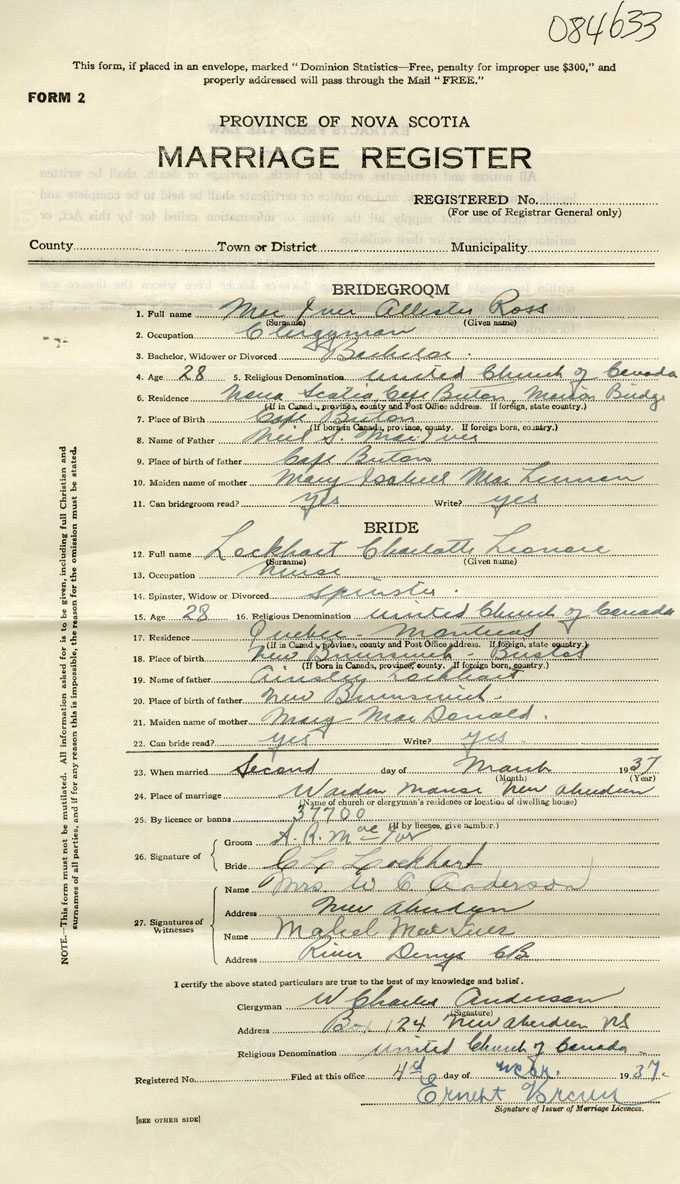 084633
This form, if placed in an envelope, marked "Dominion Statistics—Free, penalty for improper use $300," and
properly addressed will pass through the Mail "FREE."
FORM 2
PROVINCE OF NOVA SCOTIA
MARRIAGE REGISTER
REGISTERED No.
(For use of Registrar General only)
County Town or District Municipality
BRIDEGROOM
1. Full name Mac Iver Allister Ross
(Surname) (Given name)
2. Occupation Clergyman
3. Bachelor, Widower or Divorced Bachelor.
4. Age 28 5. Religious Denomination United Church of Canada
6. Residence Nova Scotia, Cape Breton, Marion Bridge
(If in Canada, province, county and Post Office address. If foreign, state country.)
7. Place of Birth Cape Breton
(If born in Canada, province, county. If foreign born, country.)
8. Name of Father Neil S. MacIver
9. Place of birth of father Cape Breton
10. Maiden name of mother Mary Isabel MacLennan
11. Can bridegroom read? yes Write? yes
BRIDE
12. Full name Lockhart Charlotte Leonore
(Surname) (Given name)
13. Occupation Nurse
14. Spinster, Widow or Divorced Spinster.
15. Age 28 16. Religious Denomination United Church of Canada
17. Residence Quebec - Montreal
(If in Canada, province, county and Post Office address. If foreign, state country.)
18. Place of birth New Brunswick - Bristol
(If born in Canada, province, county. If foreign born, country.)
19. Name of father Ainsley Lockhart
20. Place of birth of father New Brunswick.
21. Maiden name of mother Mary MacDonald.
22. Can bride read? yes Write? yes.
23. When married Second day of March 1937
(Month) (Year)
24. Place of marriage Warden Manse New Aberdeen
(Name of church or clergyman's residence or location of dwelling house)
25. By licence or banns 37700
(If by licence, give number.)
26. Signature of Groom A. R. MacIver
Bride C L Lockhart
27. Signatures of Witnesses Name Mrs. W C Anderson
Address New Aberdeen
Name Mabel MacIver
Address River Denys CB
I certify the above stated particulars are true to the best of my knowledge and belief.
Clergyman W Charles Anderson
(Signature)
Address Box 124 New Aberdeen NS
Religious Denomination United Church of Canada
Registered No. Filed at this office 4th day of 1937.
Ernest
Signature of Issuer of Marriage Licences.
[SEE OTHER SIDE]
NOTE.—This form must not be mutilated. All information asked for is to be given, including full Christian and
surnames of all parties, and if for any reason this is impossible, the reason for the omission must be stated.